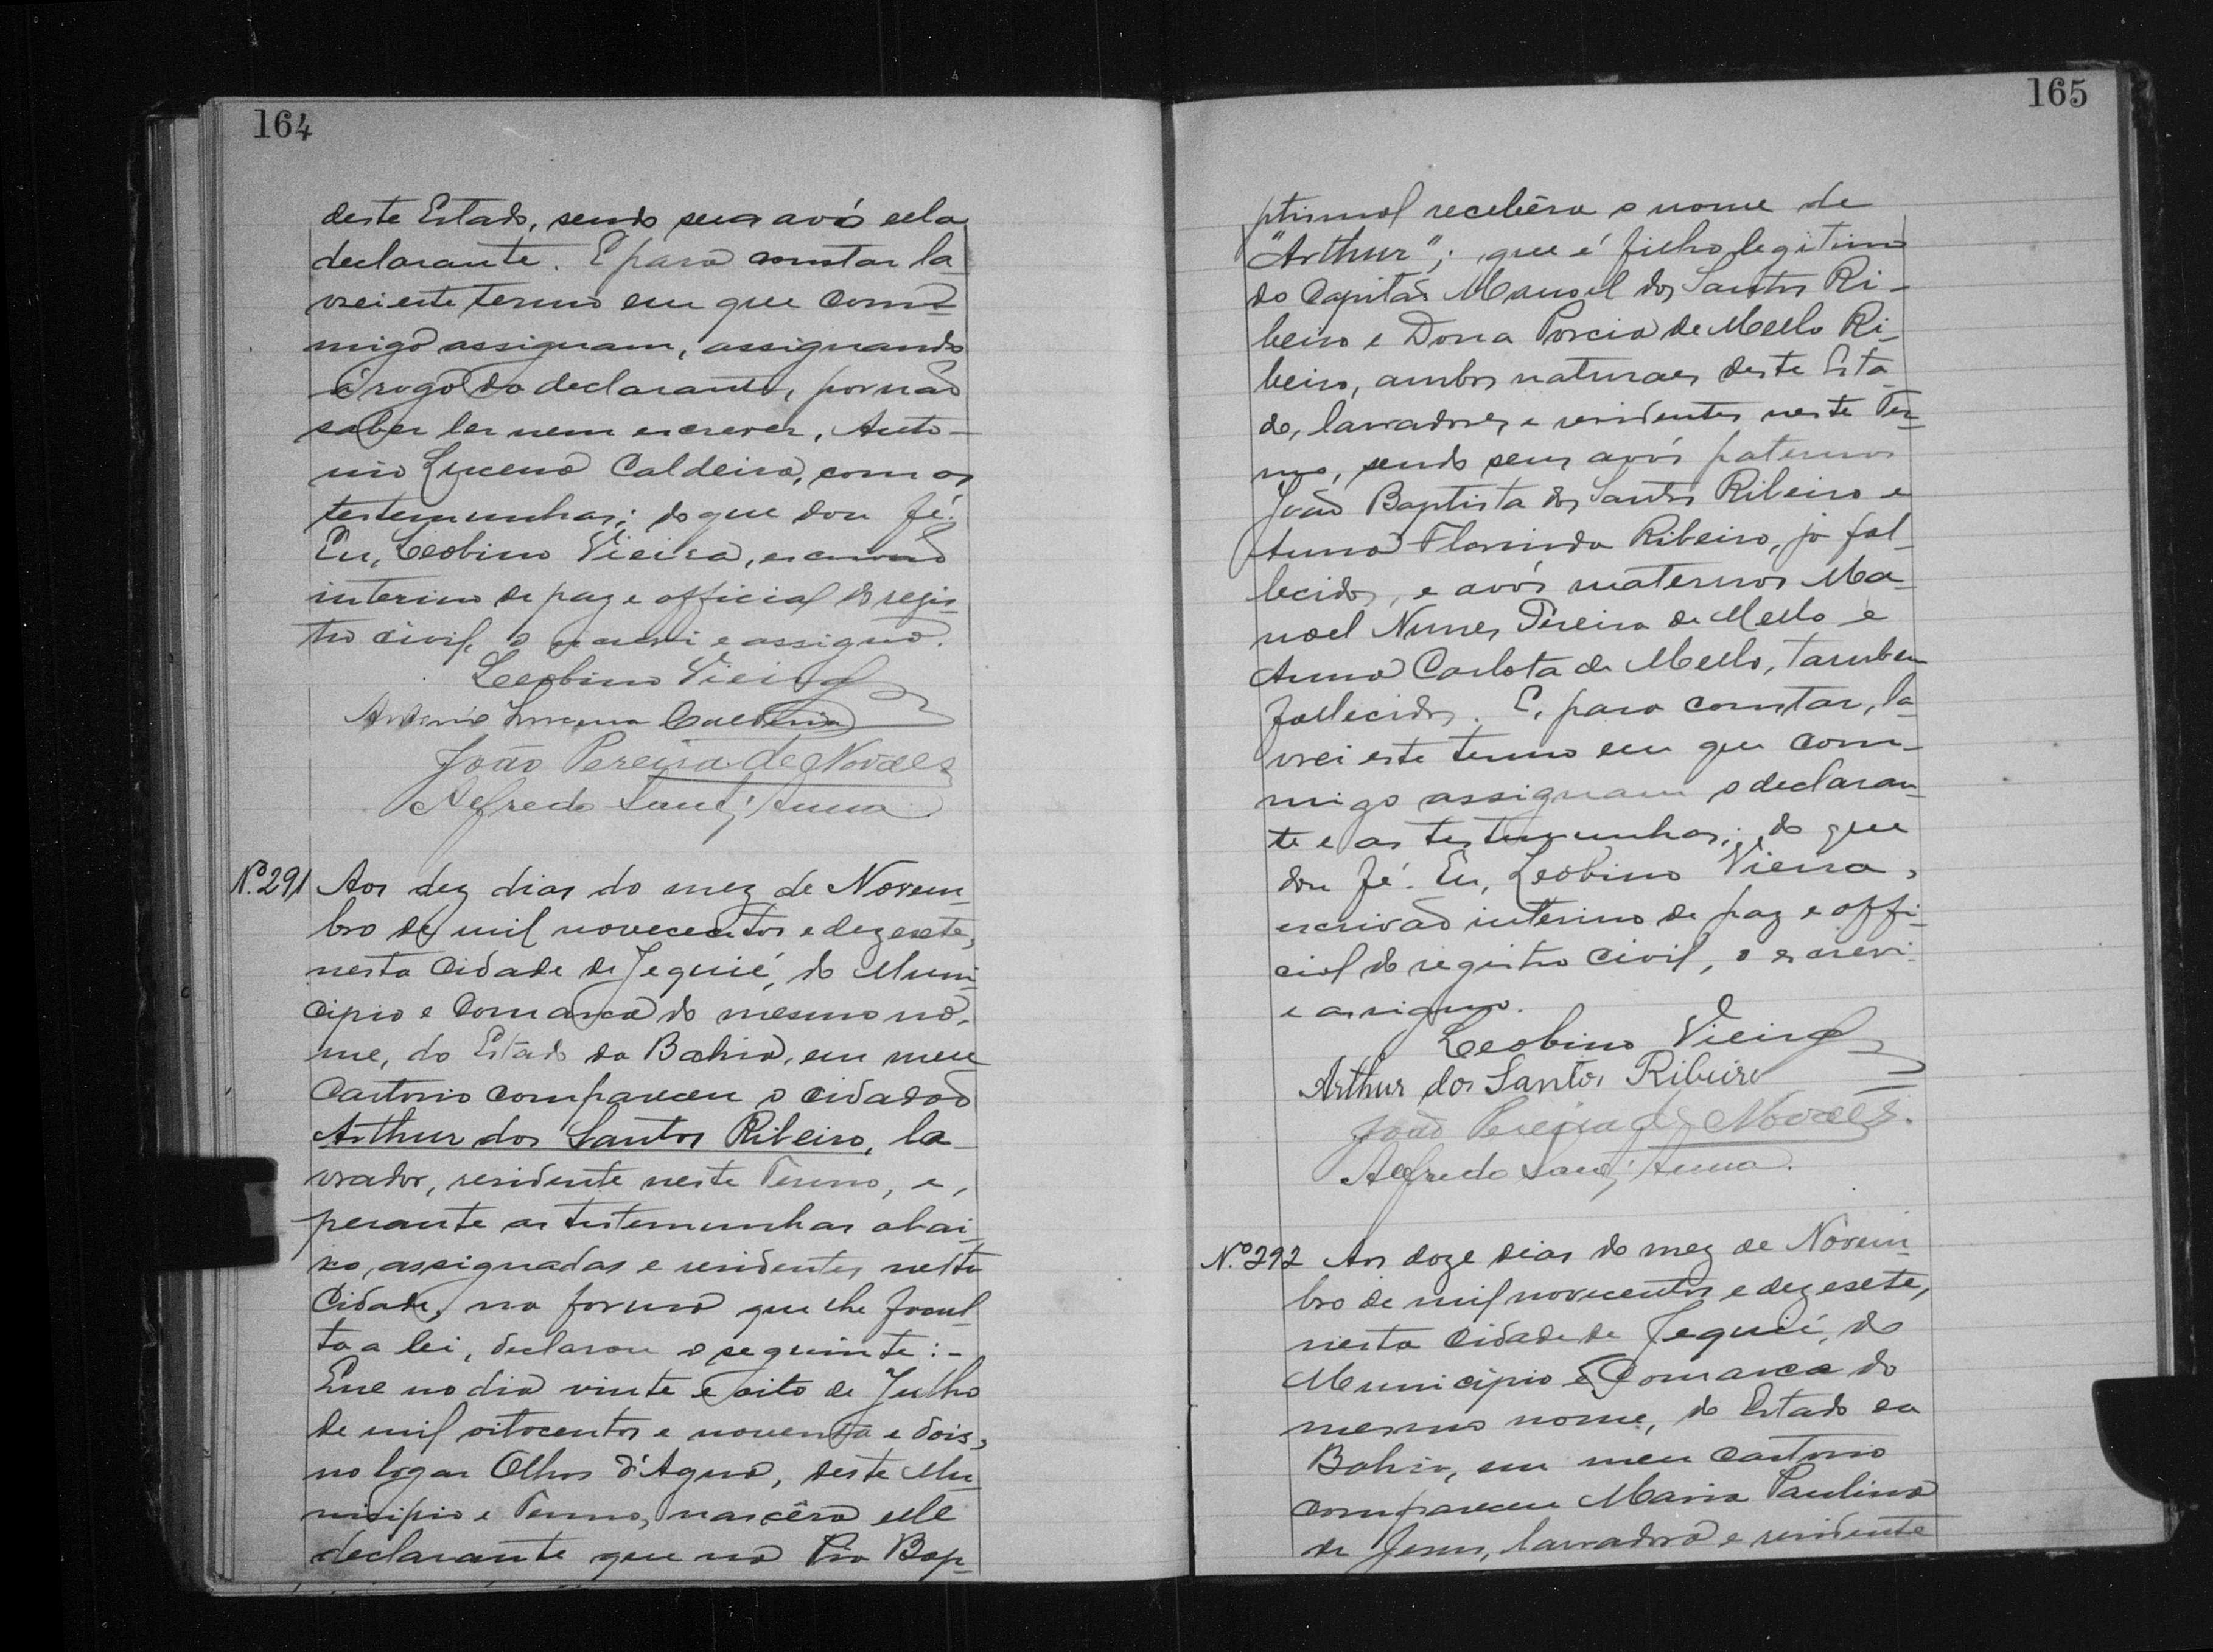 164
deste Estado, sendo seus avó ella
declarante. E para constar la
vrei este termo em que com
migo assignam, assignando
á rogo da declarante, por não
saber ler nem escrever, Anto-
nio Lucena Caldeira, com as
testemunhas; do que dou fé.
Eu, Leobino Vieira, escrivão
interino de paz e official do regis-
tro civil, o escrevi e assigno.
Leobino Vieira
Antonio Lucena Caldeira
João Pereira de Novaes
Alfredo Sant'Anna
Nº 291 Aos dez dias do mez de Novem-
bro de mil novecentos e dezesete,
nesta Cidade de Jequié, do Muni-
cipio e Comarca do mesmo no-
me, do Estado da Bahia, em meu
Cartorio compareceu o cidadão
Arthur dos Santos Ribeiro, la-
vrador, residente neste Termo, e,
perante as testemunhas abai-
xo, assignadas e residentes nesta
Cidade, na forma que lhe facul-
ta a lei, declarou o seguinte:-
Que no dia vinte e oito de Julho
de mil oitocentos e noventa e dois,
no logar Olhos d'Agua, deste Mu-
nicipio e Termo, nascêra elle
declarante que na Pia Bap-
165
ptismal recebêra o nome de
"Arthur"; que é filho legitimo
do Capitão Manoel dos Santos Ri-
beiro e Dona Porcia de Mello Ri-
beiro, ambos naturaes deste Esta
do, lavradores e residentes neste Ter-
mo, sendo seus avós paternos
João Baptista dos Santos Ribeiro e
Anna Florinda Ribeiro, já fal-
lecidos, e avós maternos Ma-
noel Nunes Pereira de Mello e
Anna Carlota de Mello, tambem
fallecidos. E, para constar, la-
vrei este termo em que com-
migo assignam o declaran-
te e as testemunhas; do que
dou fé. Eu, Leobino Vieira,
escrivão interino de paz e offi-
cial do registro civil, o escrevi
e assigno.
Leobino Vieira
Arthur dos Santos Ribeiro
João Pereira de Novaes.
Alfredo Sant'Anna.
Nº 292 Aos doze dias do mez de Novem-
bro de mil novecentos e dezesete,
nesta Cidade de Jequié, do
Municipio e Comarca do
mesmo nome, do Estado da
Bahia, em meu Cartorio
compareceu Maria Paulina
de Jesus, lavradora e residente